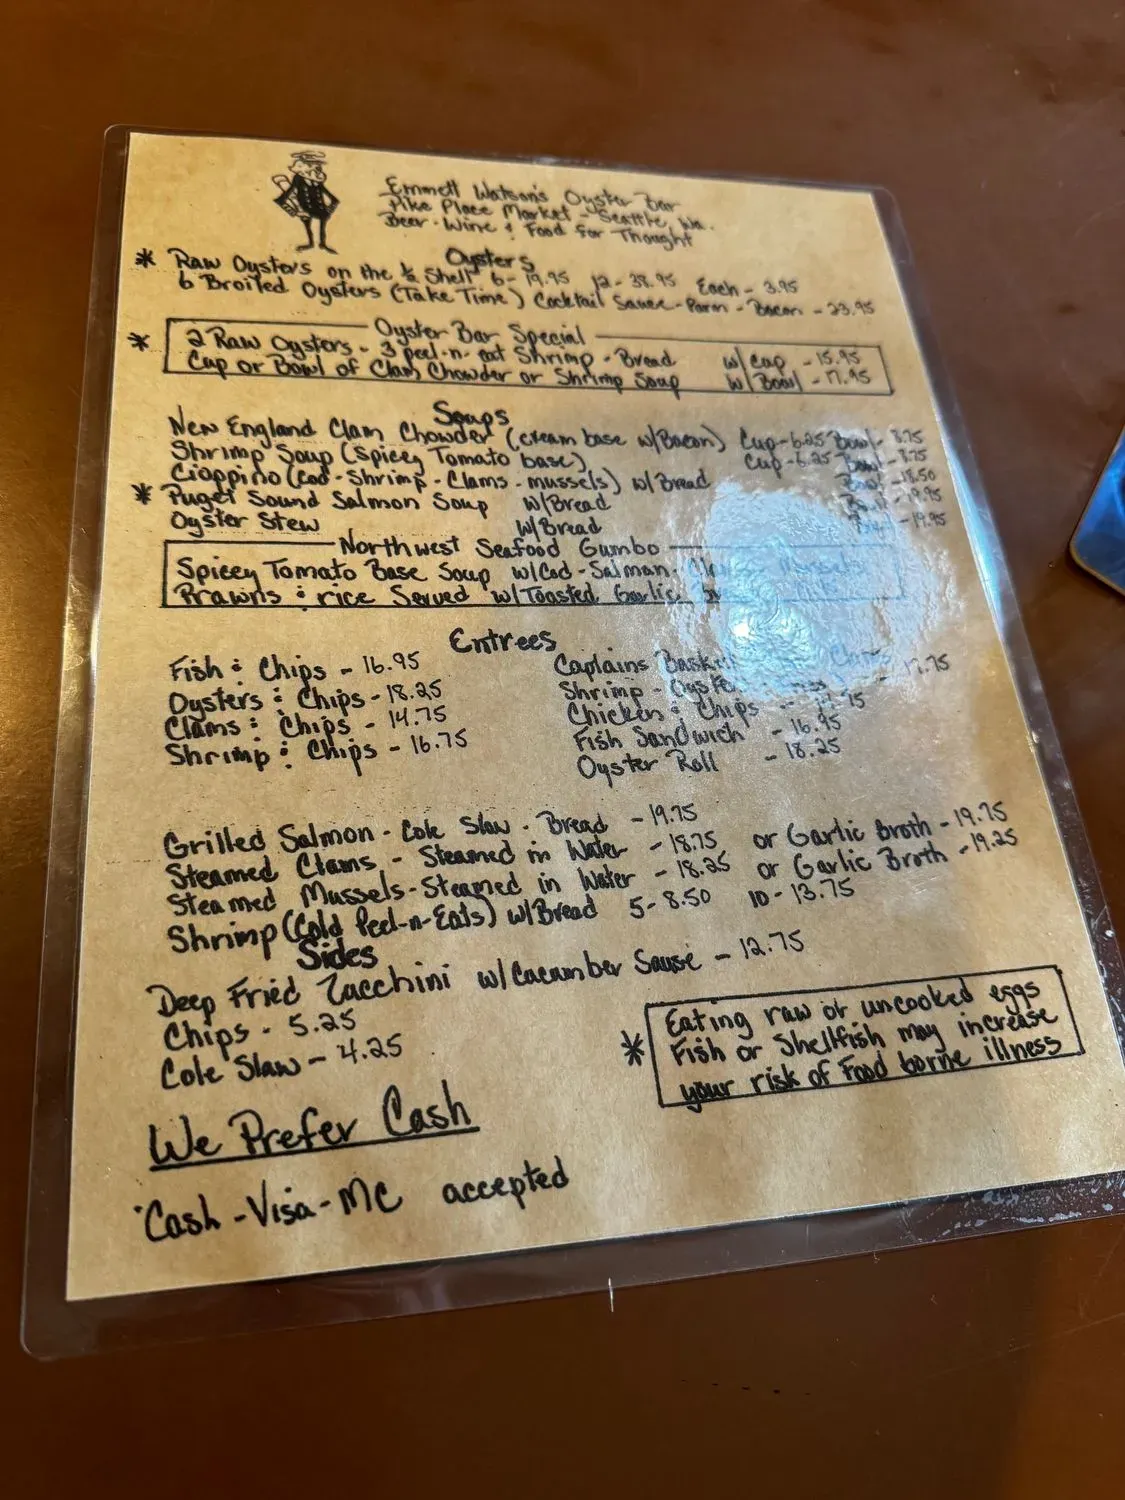 Emmett Watson's Oyster Bar
Pike Place Market - Seattle, Wa.
Beer - Wine & Food for Thought
Oysters
* Raw Oysters on the ½ Shell 6 - 19.95 12 - 38.95 Each - 3.95
6 Broiled Oysters (Take Time) Cocktail Sauce - Parm - Bacon - 23.95
Oyster Bar Special
* 2 Raw Oysters - 3 peel-n-eat Shrimp - Bread w/cup - 15.95
Cup or Bowl of Clam Chowder or Shrimp Soup w/Bowl - 17.95
Soups
New England Clam Chowder (cream base w/Bacon) Cup - 6.25 Bowl - 8.75
Shrimp Soup (Spicey Tomato base) Cup - 6.25 Bowl - 8.75
Cioppino (Cod - Shrimp - Clams - mussels) w/Bread Bowl - 18.50
* Puget Sound Salmon Soup w/Bread Bowl - 19.95
Oyster Stew w/Bread Bowl - 19.95
Northwest Seafood Gumbo
Spicey Tomato Base Soup w/Cod - Salmon -
Prawns & rice Served w/Toasted Garlic
Entrees
Fish & Chips - 16.95
Oysters & Chips - 18.25
Clams & Chips - 14.75
Shrimp & Chips - 16.75
Captains Basket
Shrimp - Oyster 17.75
Chicken & Chips
Fish Sandwich - 16.95
Oyster Roll - 18.25
Grilled Salmon - Cole Slaw - Bread - 19.75
Steamed Clams - Steamed in Water - 18.75 or Garlic Broth - 19.75
Steamed Mussels - Steamed in Water - 18.25 or Garlic Broth - 19.25
Shrimp (Cold Peel-n-Eats) w/Bread 5 - 8.50 10 - 13.75
Sides
Deep Fried Zucchini w/Cucumber Sause - 12.75
Chips - 5.25
Cole Slaw - 4.25
* Eating raw or uncooked eggs
Fish or Shellfish may increase
your risk of Food borne illness
We Prefer Cash
Cash - Visa - MC accepted